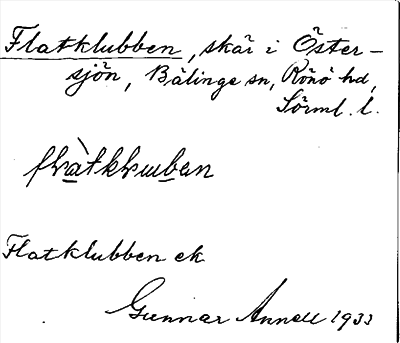 Flatklubben, skär i Öster-
sjön, Bälinge sn, Rönö hd,
Sörml. l.
flàtkluban
Flatklubben ek
Gunnar Annell 1933